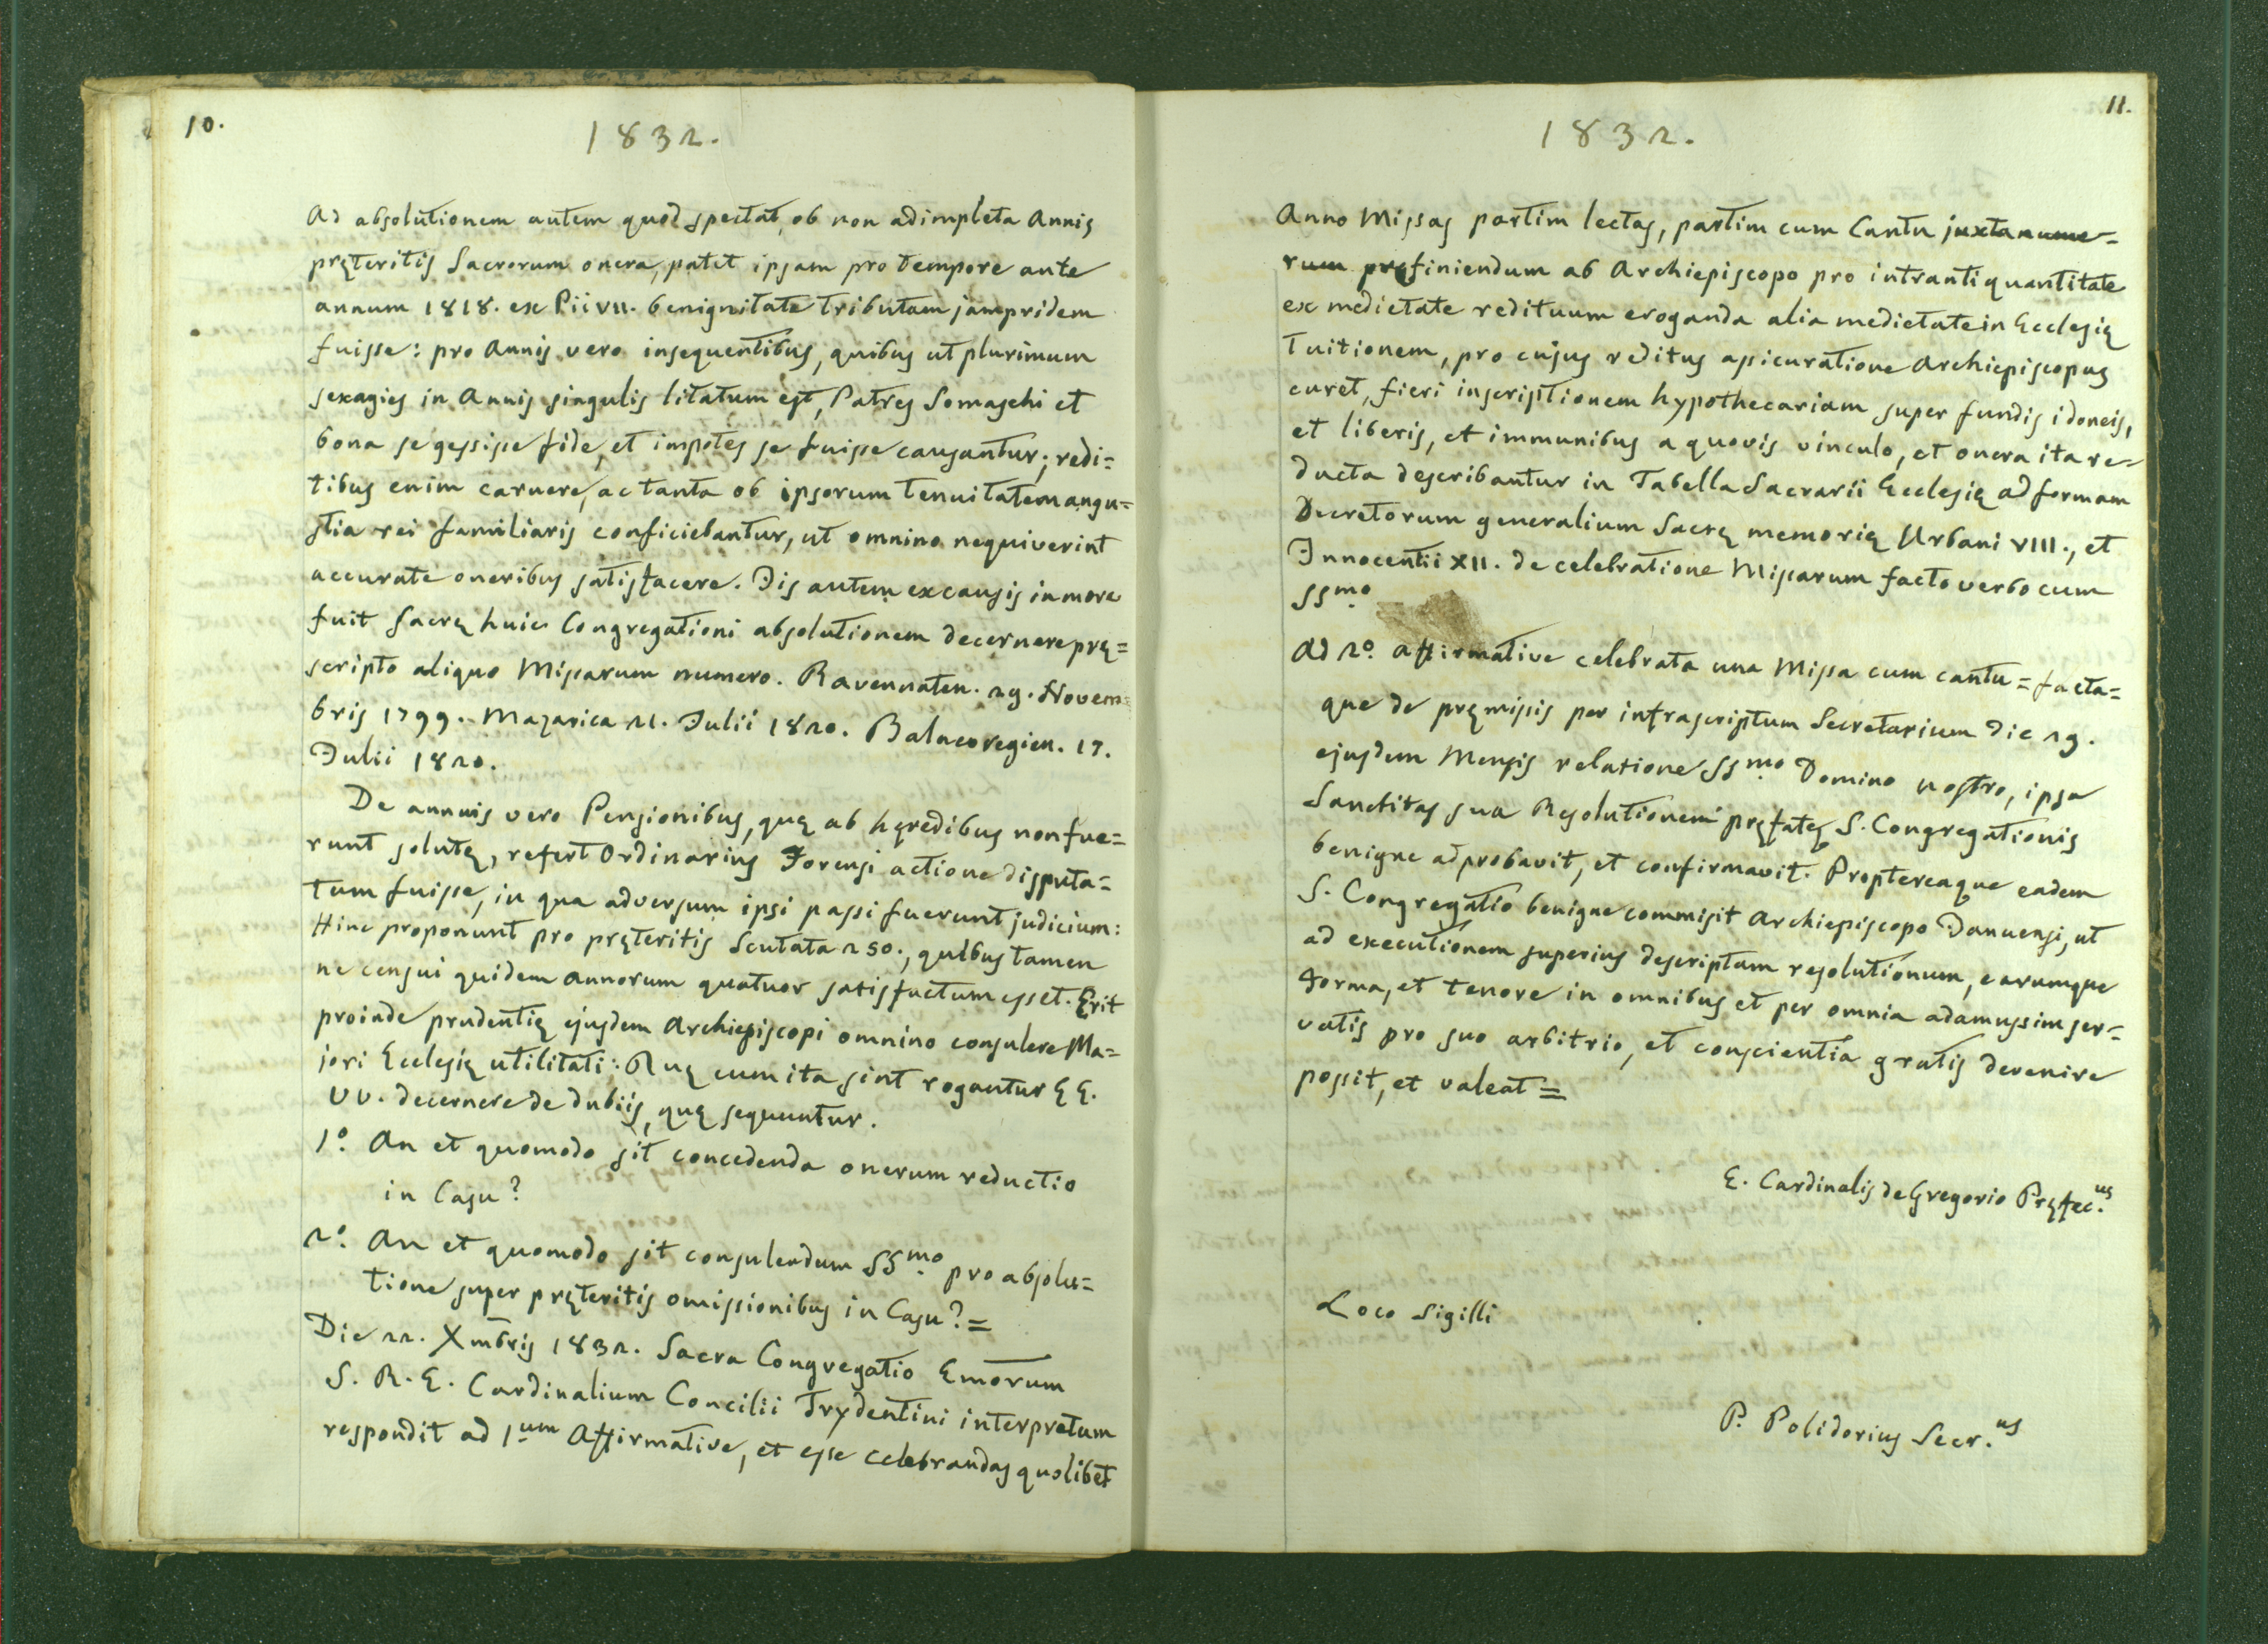 10.
1832.
Ad absolutionem autem quod spectat, ob non adimpleta Annis
pręteritis Sacrorum onera, patet ipsam pro tempore ante
annum 1818. ex Pii VII. benignitate tributam jampridem
fuisse: pro Annis vero insequentibus, quibus ut plurimum
sexagies in Annis singulis litatum est, Patres Somaschi et
bona se gessisse fide, et impotes se fuisse causantur; redi=
tibus enim caruere, ac tanta ob ipsorum tenuitatem angu=
stia rei familiaris conficiebantur, ut omnino nequiverint
accurate oneribus satisfacere. Iis autem ex causis in more
fuit Sacrę huic Congregationi absolutionem decernere prę=
scripto aliquo Missarum numero. Ravennaten. 29. Novem=
bris 1799. Mazarica 21. Julii 1820. Balneoregien. 17.
Julii 1820.
De annuis vero Pensionibus, quę ab hęredibus non fue=
runt solutę, refert Ordinarius Forensi actione disputa=
tum fuisse, in qua adversum ipsi passi fuerunt judicium:
Hinc proponunt pro pręteritis Scutata 250., quibus tamen
ne censui quidem annorum quatuor satisfactum esset. Erit
proinde prudentię ejusdem Archiepiscopi omnino consulere Ma=
jori Ecclesię utilitati: Quę cum ita sint rogantur EE.
VV. decernere de dubiis, quę sequuntur.
1º. An et quomodo sit concedenda onerum reductio
in Casu?
2º. An et quomodo sit consulendum SSmo. pro absolu=
tione super pręteritis omissionibus in Casu? =
Die 22. Xmbris 1832. Sacra Congregatio Emorum
S. R. E. Cardinalium Concilii Trydentini interpretum
respondit ad 1um Affirmative, et esse celebrandas quolibet
11.
1832.
Anno Missas partim lectas, partim cum Cantu juxta nume=
rum pręfiniendum ab Archiepiscopo pro intranti quantitate
ex medietate redituum eroganda alia medietate in Ecclesię
tuitionem, pro cujus reditus assicuratione Archiepiscopus
curet, fieri inscriptionem hypothecariam super fundis idoneis,
et liberis, et immunibus a quovis vinculo, et onera ita re=
ducta describantur in Tabella Sacrarii Ecclesię ad formam
Decretorum generalium Sacrę memorię Urbani VIII., et
Innocentii XII. de celebratione Missarum facto verbo cum
SSmo.
Ad 2º. affirmative celebrata una Missa cum cantu = facta=
que de pręmissis per infrascriptum Secretarium die 29.
ejusdem Mensis relatione SSmo. Domino nostro, ipsa
Sanctitas sua Resolutionem pręfatę S. Congregationis
benigne adprobavit, et confirmavit. Proptereaque eadem
S. Congregatio benigne commisit Archiepiscopo Januensi, ut
ad executionem superius descriptam resolutionum, earumque
forma, et tenore in omnibus et per omnia adamussim ser=
vatis pro suo arbitrio, et conscientia gratis devenire
possit, et valeat =
E. Cardinalis de Gregorio Pręfec.us
Loco Sigilli
P. Polidorius Secr.us